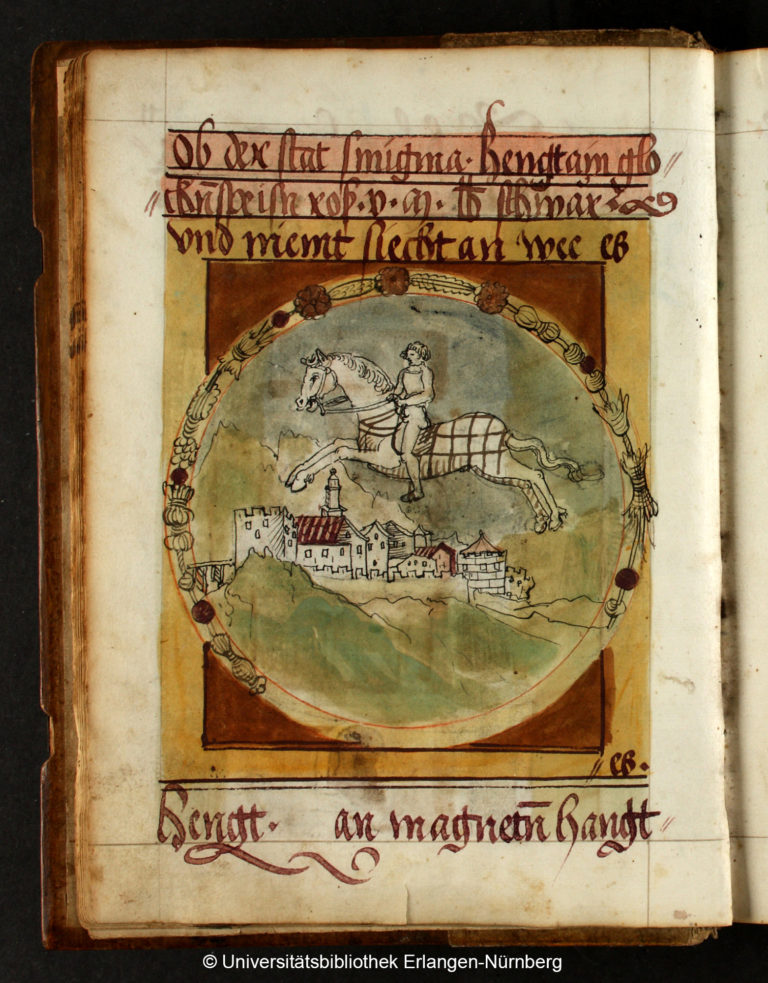 Ob der stat smigma· hengt ain glo〃
〃ckn̄speisn ros·v·M· lb schwär·
vnd niemt siecht an wee es
〃es·
hengt· an magnetn̄ hangt〃
© Universitätsbibliothek Erlangen-Nürnberg